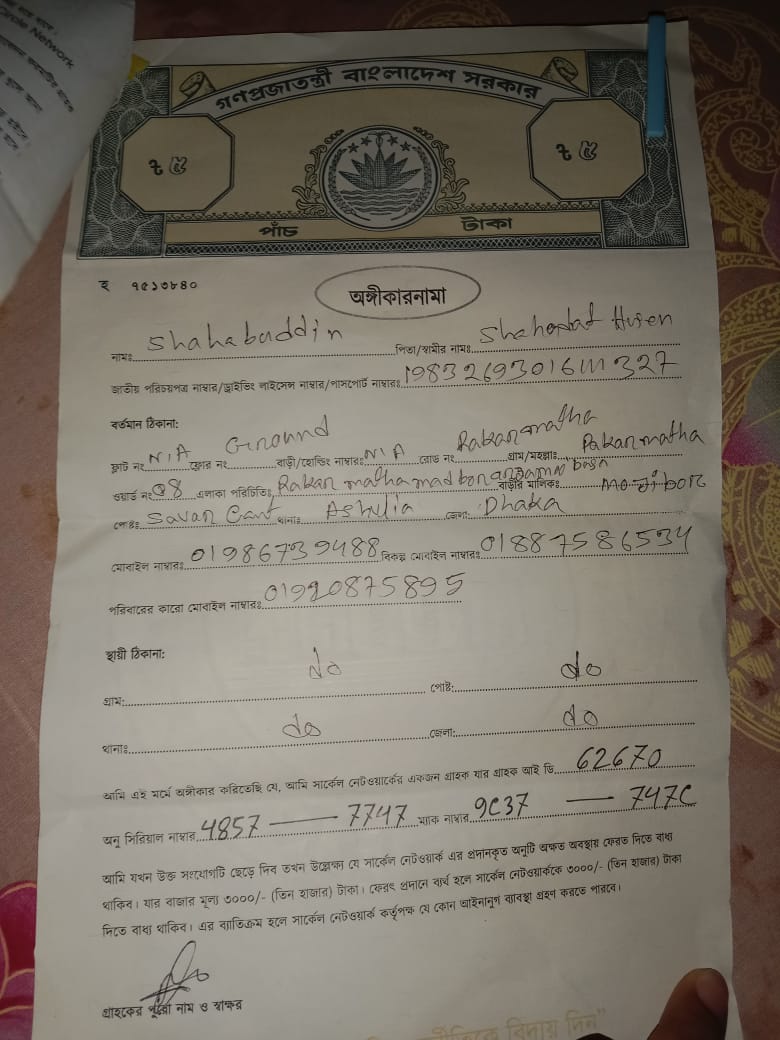 role Network
গণপ্রজাতন্ত্রী বাংলাদেশ সরকার
৳ ৫ ৳ ৫
পাঁচ টাকা
হ ৭৫১৩৮৪০
অঙ্গীকারনামা
নামঃ Shahabuddin পিতা/স্বামীর নামঃ Shahadat Husen
জাতীয় পরিচয়পত্র নাম্বার/ড্রাইভিং লাইসেন্স নাম্বার/পাসপোর্ট নাম্বারঃ
বর্তমান ঠিকানা:
ফ্লাট নং N/A ফ্লোর নং Ground বাড়ী/হোল্ডিং নাম্বারঃ N/A রোড নং Pakanmatha গ্রাম/মহল্লাঃ Pakanmatha
ওয়ার্ড নং 08 এলাকা পরিচিতিঃ বাড়ীর মালিকঃ
পোষ্টঃ Savar Cant থানাঃ Ashulia জেলাঃ Dhaka
মোবাইল নাম্বারঃ 01986739488 বিকল্প মোবাইল নাম্বারঃ 01887586534
পরিবারের কারো মোবাইল নাম্বারঃ 01920875895
স্থায়ী ঠিকানা:
গ্রাম: do পোষ্ট: do
থানাঃ do জেলা: do
আমি এই মর্মে অঙ্গীকার করিতেছি যে, আমি সার্কেল নেটওয়ার্কের একজন গ্রাহক যার গ্রাহক আই ডি 62670
অনু সিরিয়াল নাম্বার 4857 — 7747 ম্যাক নাম্বার 9C37 — 747C
আমি যখন উক্ত সংযোগটি ছেড়ে দিব তখন উল্লেক্ষ্য যে সার্কেল নেটওয়ার্ক এর প্রদানকৃত অনুটি অক্ষত অবস্থায় ফেরত দিতে বাধ্য
থাকিব। যার বাজার মূল্য ৩০০০/- (তিন হাজার) টাকা। ফেরৎ প্রদানে ব্যর্থ হলে সার্কেল নেটওয়ার্ককে ৩০০০/- (তিন হাজার) টাকা
দিতে বাধ্য থাকিব। এর ব্যতিক্রম হলে সার্কেল নেটওয়ার্ক কর্তৃপক্ষ যে কোন আইনানুগ ব্যবস্থা গ্রহণ করতে পারবে।
গ্রাহকের পুরো নাম ও স্বাক্ষর
বিদায় দিন"